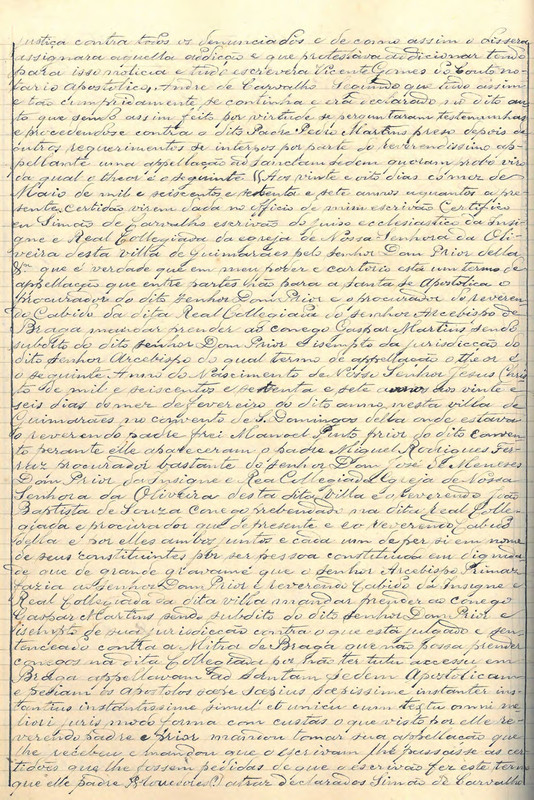 justiça contra todos os denunciados e de como assim o dissera
assignara aquella addição e que protestava addicionar tendo
para isso noticia e tudo escrevera Vicente Gomes do Couto no-
tario Apostolico, Andre de Carvalho. Segundo que tudo assim
e tão cumpridamente se continha e era declarado no dito au-
to que sendo assim feito por virtude se perguntaram testemunhas
e procedendo-se contra o dito Padre Pedro Martins preso depois de
outros requerimentos se interpos por parte do reverendissimo ap-
pellante uma appellação ad sanctam sedem quoram probo viro
da qual o theor é o seguinte (( Aos vinte e oito dias do mez de
Maio de mil e seiscentos e setenta e sete annos aquantos a pre-
sente certidão virem dada no officio de mim escrivão Certifico
eu Simão de Carvalho escrivão do juiso ecclesiastico da Insi-
gne e Real Collegiada da egreja de Nossa Senhora da Oli-
veira desta villa de Guimarães pelo senhor Dom Prior della
&ª que é verdade que em meu poder e cartorio está um termo de
appellação que entre partes hão para a Santa se Apostolica o
procurador do dito senhor Dom Prior e procurador do reveren-
do Cabido da dita Real Collegiada do senhor Arcebispo de
Braga mandar prender ao conego Gaspar Martins sendo
subdito do dito senhor Dom Prior e isempto da jurisdicção do
dito senhor Arcebispo do qual termo de appellação o theor é
o seguinte. Anno do Nascimento de Nosso Senhor Jesus Chris
to de mil e seiscentos e setenta e sete annos aos vinte e
seis dias do mez de fevereiro do dito anno nesta villa de
Guimarães no convento de S. Domingos della onde estava
o reverendo padre frei Manoel Pinto prior do dito conven
to perante elle appareceram o padre Miguel Rodrigues Fer-
raz procurador bastante do senhor Dom José de Meneses
Dom Prior da Insigne e Real Collegiada Egreja de Nossa
Senhora da Oliveira desta dita Villa e o reverendo João
Baptista de Souza conego prebendado na dita Real Colle-
giada e procurador que de presente é do Reverendo Cabido
della e por elles ambos juntos e cada um de per si em nome
de seus constituintes por ser pessoa constituida em dignida-
de que de grande gravame que o senhor Arcebispo Primaz
fazia ao Senhor Dom Prior e reverendo Cabido da Insigne e
Real Collegiada da dita villa mandar prender ao conego
Gaspar Martins sendo subdito do dito senhor Dom Prior e
isempto de sua jurisdicção contra o que está julgado e sen-
tenceado contra a Mitra de Braga que não possa prender
conegos na dita Collegiada por não ter tutu accessu em
Braga appellavam ad santam Sedem Apostolicam
e pediam os apostolos sæpe sæpius sæpissime instanter ins-
tantius instantissime simul et unicu cum testu omni me
liori juris modo forma com custas o que visto por elle re-
verendo padre e Prior mandou tomar sua appellação que
lhe recebeu e mandou que o escrivam lhe passasse as cer
tidões que lhe fossem pedidas de que o escrivão fez este termo
que elle padre atraz declarados Simão de Carvalho